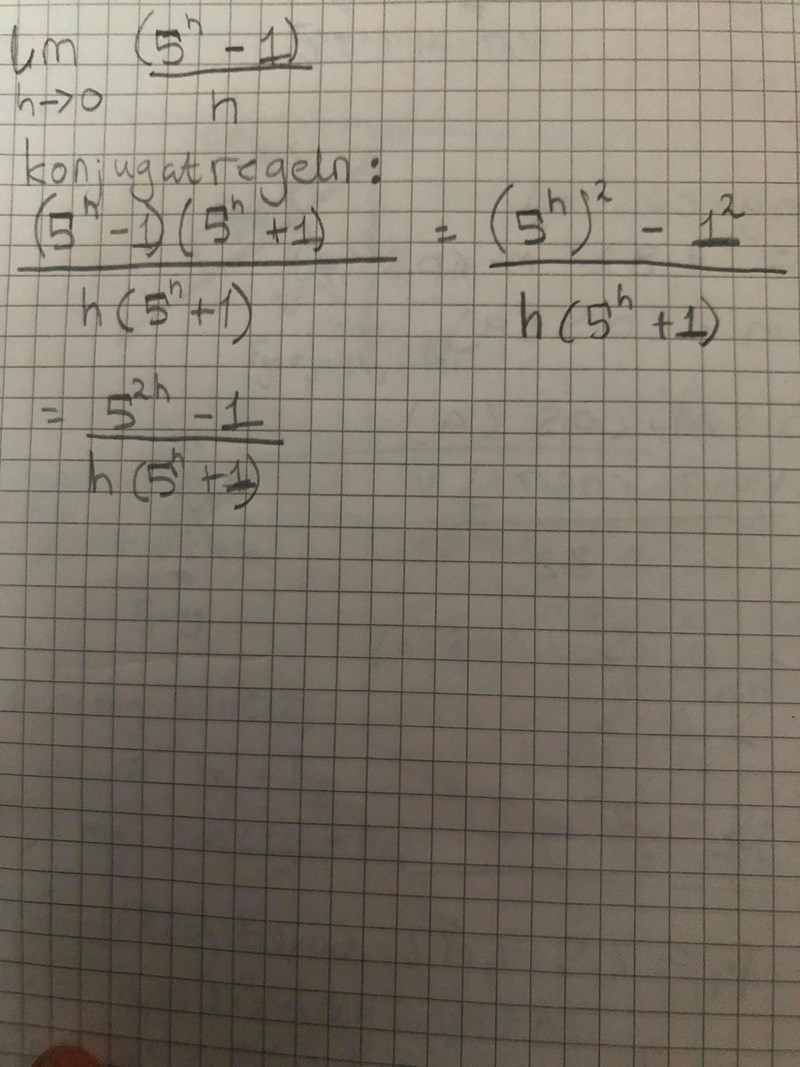 lim (5^h - 1)
h→0 h
konjugatregeln:
(5^h - 1)(5^h + 1) = (5^h)^2 - 1^2
h(5^h + 1) h(5^h + 1)
= 5^2h - 1
h(5^h + 1)